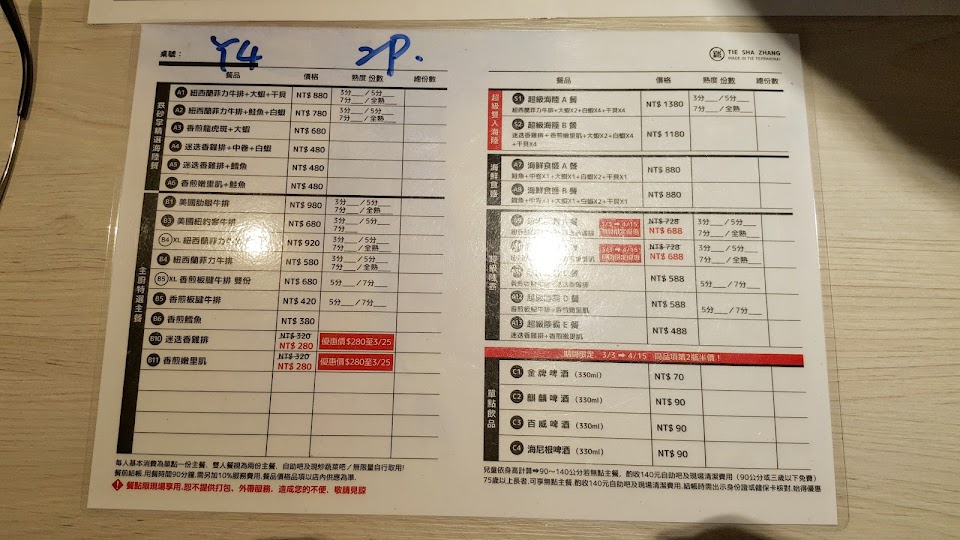 桌號： Y4 2P.
餐品 價格 熟度 份數 總份數
鉄砂掌精選海陸餐
A1 紐西蘭菲力牛排+大蝦+干貝 NT$ 880 3分___/5分___
7分___/全熟___
A2 紐西蘭菲力牛排+鮭魚+白蝦 NT$ 780 3分___/5分___
7分___/全熟___
A3 香煎龍虎斑+大蝦 NT$ 680
A4 迷迭香雞排+中卷+白蝦 NT$ 480
A5 迷迭香雞排+鱈魚 NT$ 480
A6 香煎嫩里肌+鮭魚 NT$ 480
主廚特選主餐
B1 美國肋眼牛排 NT$ 980 3分___/5分___
7分___/全熟___
B3 美國紐約客牛排 NT$ 680 3分___/5分___
7分___
B4 XL 紐西蘭菲力牛排 NT$ 920 3分___/5分___
7分___/全熟___
B4 紐西蘭菲力牛排 NT$ 580 3分___/5分___
7分___/全熟___
B5 XL 香煎板腱牛排 雙份 NT$ 680 5分___/7分___
B5 香煎板腱牛排 NT$ 420 5分___/7分___
B6 香煎鱈魚 NT$ 380
B10 迷迭香雞排 NT$ 320
NT$ 280 優惠價$280至3/25
B11 香煎嫩里肌 NT$ 320
NT$ 280 優惠價$280至3/25
每人基本消費為單點一份主餐、雙人餐視為兩份主餐、自助吧及現炒蔬菜吧／無限量自行取用!
餐前結帳,用餐時間90分鐘,需另加10%服務費用.餐品價格品項以店內供應為準.
! 餐點限現場享用,恕不提供打包、外帶服務，造成您的不便、敬請見諒
鐵 TIE SHA ZHANG
MADE IN TIE TEPPANYAKI
餐品 價格 熟度 份數 總份數
超級雙人海陸
S1 超級海陸 A 餐 NT$ 1380 3分___/5分___
紐西蘭菲力牛排+大蝦X2+白蝦X4+干貝X4 7分___/全熟___
S2 超級海陸 B 餐 NT$ 1180
迷迭香雞排+香煎嫩里肌+大蝦X2+白蝦X4
+干貝X4
海鮮食盛
A7 海鮮食盛 A 餐 NT$ 880
鮭魚+中卷X1+大蝦X1+白蝦X2+干貝X1
A8 海鮮食盛 B 餐 NT$ 880
鱈魚+中卷X1+大蝦X1+白蝦X2+干貝X1
超級陸霸
NT$ 728 3分___/5分___
3/3 ➡ 4/15 NT$ 688 7分___/全熟___
NT$ 728 3分___/5分___
3/3 ➡ 4/15 NT$ 688 7分___/全熟___
NT$ 588 5分___/7分___
A12 超級陸霸 D 餐 NT$ 588 5分___/7分___
香煎板腱牛排+香煎嫩里肌
A13 超級陸霸 E 餐 NT$ 488
迷迭香雞排+香煎嫩里肌
期間限定 3/3 ➡ 4/15 同品項第2瓶半價！
單點飲品
C1 金牌啤酒（330ml） NT$ 70
C2 麒麟啤酒（330ml） NT$ 90
C3 百威啤酒（330ml） NT$ 90
C4 海尼根啤酒（330ml） NT$ 90
兒童依身高計算➡90～140公分若無點主餐、酌收140元自助吧及現場清潔費用 (90公分或三歲以下免費)
75歲以上長者,可享無點主餐,酌收140元自助吧及現場清潔費用.結帳時需出示身份證或健保卡核對.始得優惠